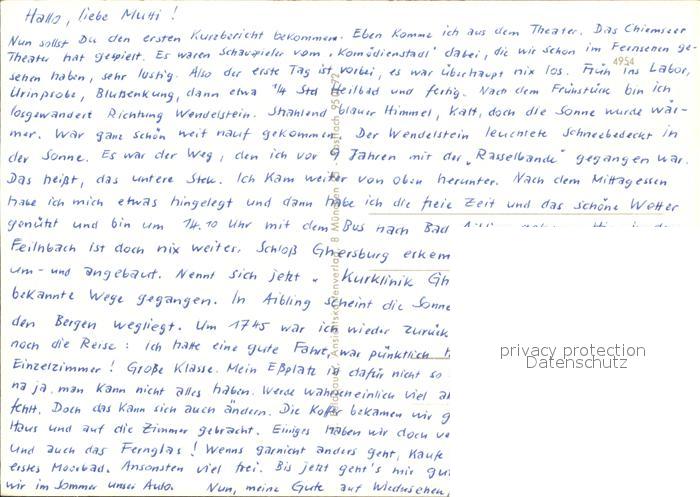 Hallo, liebe Mutti!
Nun sollst Du den ersten Kurzbericht bekommen. Eben komme ich aus dem Theater. Das Chiemseer
Theater hat gespielt. Es waren Schauspieler vom "Komödienstadl" dabei, die wir schon im Fernsehen ge-
4954
sehen haben, sehr lustig. Also der erste Tag ist vorbei, es war überhaupt nix los. Früh ins Labor,
Urinprobe, Blutsenkung, dann etwa 1/4 Std Heilbad und fertig. Nach dem Frühstück bin ich
losgewandert Richtung Wendelstein. Strahlend blauer Himmel, kalt, doch die Sonne wurde wär-
mer. War ganz schön weit nauf gekommen. Der Wendelstein leuchtete Schneebedeckt in
der Sonne. Es war der Weg, den ich vor 9 Jahren mit der "Rasselbande" gegangen war.
Das heißt, das untere Stck. Ich kam weiter von oben herunter. Nach dem Mittagessen
habe ich mich etwas hingelegt und dann habe ich die freie Zeit und das schöne Wetter
genützt und bin um 14.10 Uhr mit dem Bus nach Bad
Feilnbach ist doch nix weiter. Schloß Ghersburg
um- und angebaut. Nennt sich jetzt "Kurklinik Gh
bekannte Wege gegangen. In Aibling scheint die Sonne
den Bergen wegliegt. Um 1745 war ich wieder zurück
noch die Reise: ich hatte eine gute Fahrt, war pünktlich
Einzelzimmer! Große Klasse. Mein Eßplatz ist dafür nicht so
na ja, man kann nicht alles haben. Werde wahrscheinlich viel
fehlt. Doch das kann sich auch ändern. Die Koffer bekamen wir
Haus und auf die Zimmer gebracht. Einiges haben wir doch
und auch das Fernglas! Wenns garnicht anders geht, kaufe
erstes Moorbad. Ansonsten viel frei. Bis jetzt geht's mir
wir im Sommer unser Auto. Nun, meine Gute auf Wiedersehen,
Ansichtskartenverlag, 8 München
privacy protection
Datenschutz